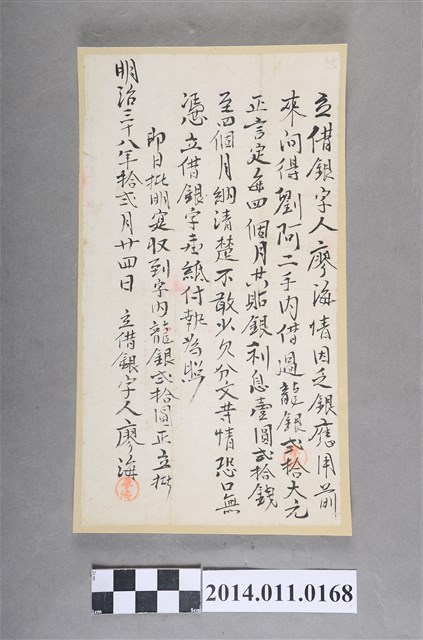 立借銀字人廖海情因乏銀應用前
來问得劉阿二手内借過龍銀弍拾大元
正言定每四個月共貼銀利息壹圓弍拾錢
至四個月納清楚不敢少欠分文等情恐口無
憑立借銀字壹紙付執為照
即日批明寔收到字内龍銀弍拾圓正立批
明治三十八年拾弍月廿四日 立借銀字人廖海
2014.011.0168